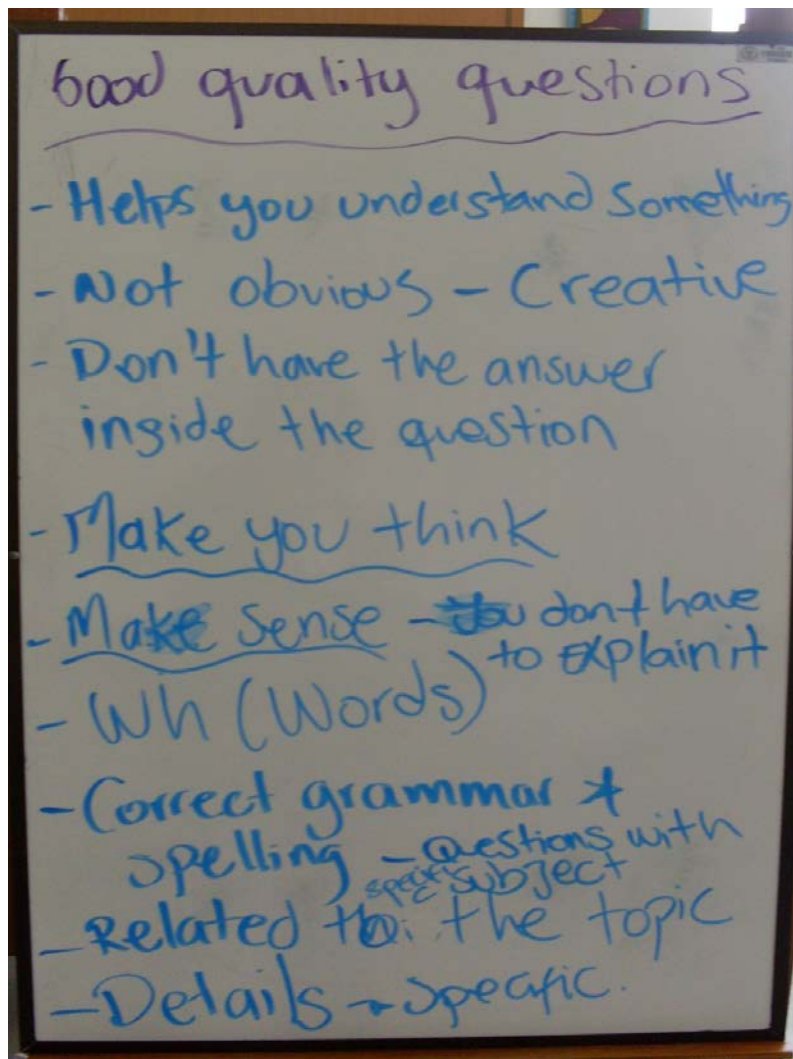 Good quality questions
- Helps you understand something
- Not obvious - Creative
- Don't have the answer
inside the question
- Make you think
- Make sense - you don't have
to explain it
- Wh (Words)
- Correct grammar +
spelling - Questions with
specific subject
- Related to the topic
- Details - Specific.